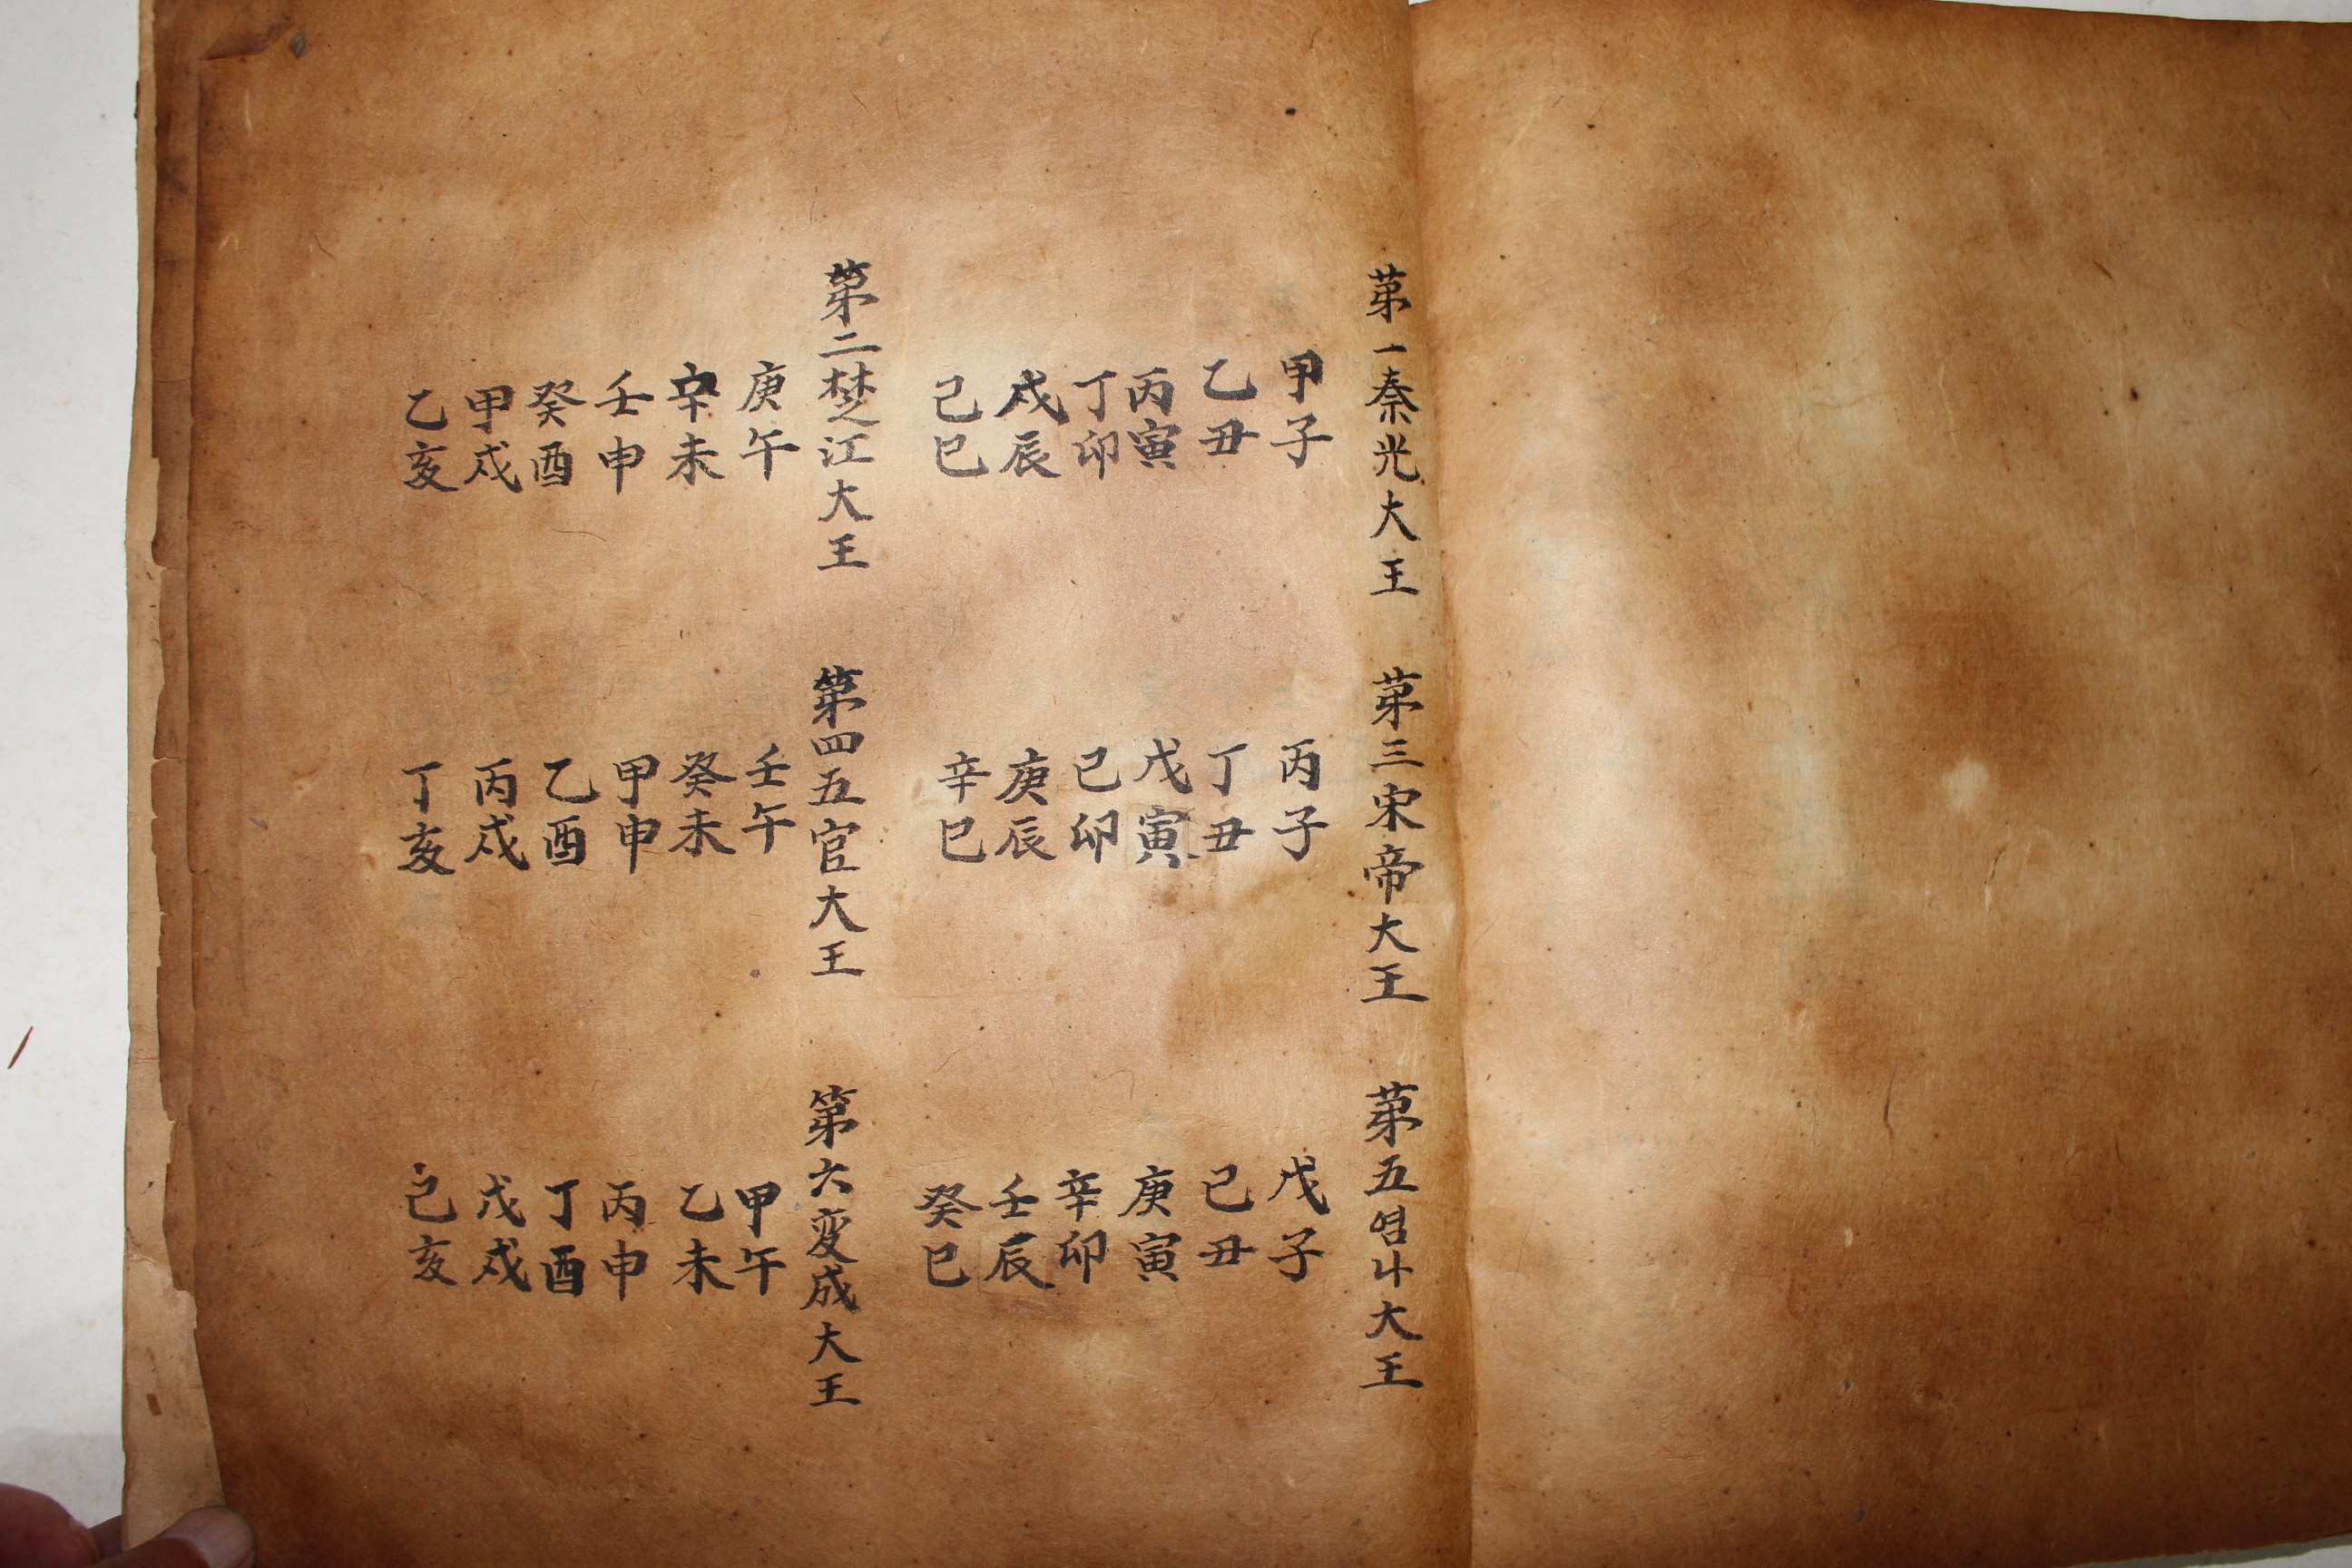 苐一秦光大王
甲子
乙丑
丙寅
丁卯
戊辰
己巳
第二椘江大王
庚午
辛未
壬申
癸酉
甲戌
乙亥
苐三宋帝大王
丙子
丁丑
戊寅
己卯
庚辰
辛巳
第四五官大王
壬午
癸未
甲申
乙酉
丙戌
丁亥
苐五염나大王
戊子
己丑
庚寅
辛卯
壬辰
癸巳
第六変成大王
甲午
乙未
丙申
丁酉
戊戌
己亥